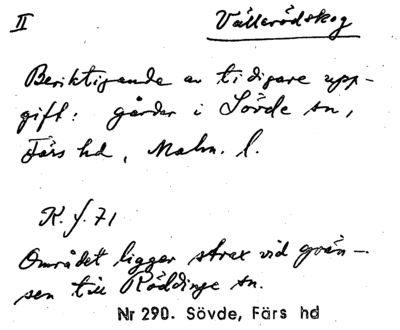 II
Vällerödskog
Beriktigande av tidigare upp-
gift: gårdar i Sövde sn,
Färs hd, Malm. l.
K. f. 71
Området ligger strax vid grän-
sen till Röddinge sn.
Nr 290. Sövde, Färs hd